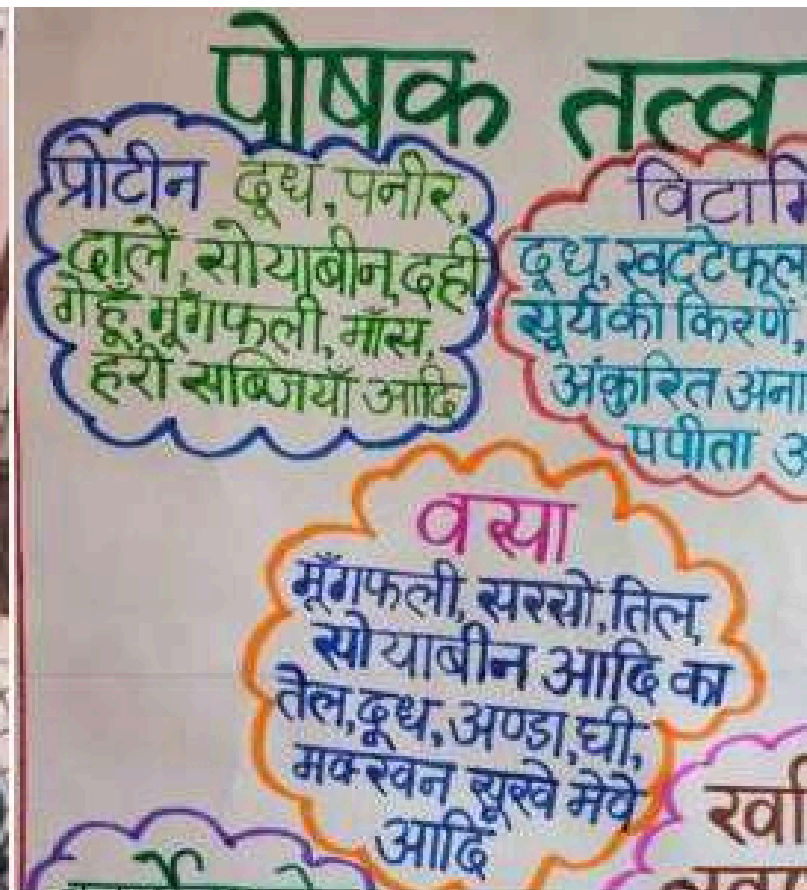 पोषक तत्व
प्रोटीन दूध, पनीर,
दालें, सोयाबीन, दही
गेहूँ, मूँगफली, माँस,
हरी सब्जियाँ आदि
दूध, खट्टे फल
सूर्य की किरणें,
अंकुरित
पपीता
वसा
मूँगफली, सरसो, तिल,
सोयाबीन आदि का
तेल, दूध, अण्डा, घी,
मक्खन सूखे मेवे
आदि